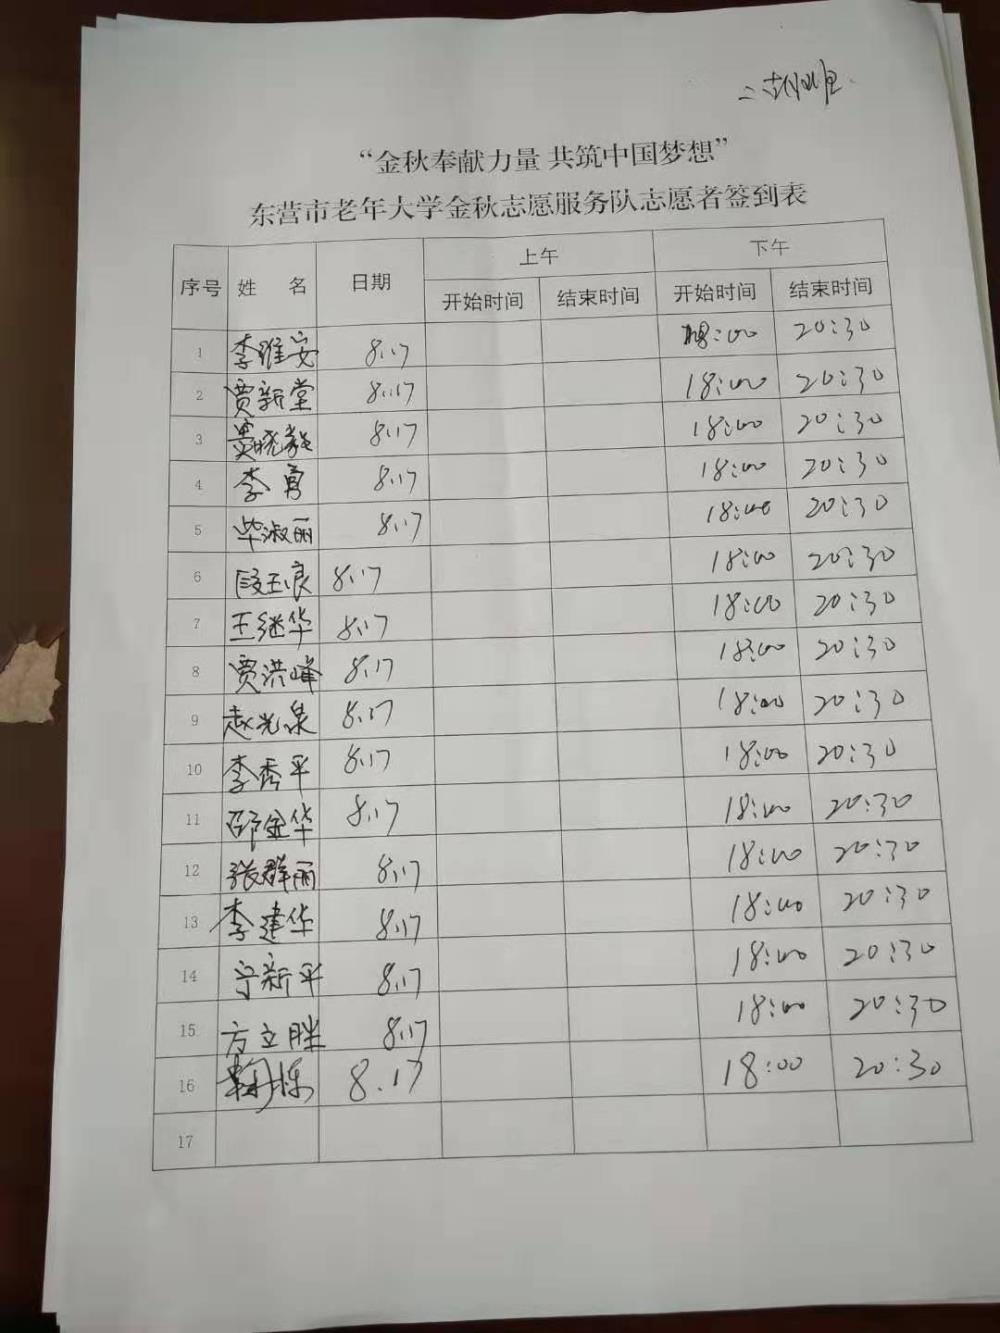 二胡班
“金秋奉献力量 共筑中国梦想”
东营市老年大学金秋志愿服务队志愿者签到表
序号 姓 名 日期 上午 下午
开始时间 结束时间 开始时间 结束时间
1 李维安 8.17 18:00 20:30
2 贾新堂 8.17 18:00 20:30
3 晓毅 8.17 18:00 20:30
4 李勇 8.17 18:00 20:30
5 毕淑丽 8.17 18:00 20:30
6 段玉良 8.17 18:00 20:30
7 王继华 8.17 18:00 20:30
8 贾洪峰 8.17 18:00 20:30
9 赵光泉 8.17 18:00 20:30
10 李秀平 8.17 18:00 20:30
11 邵金华 8.17 18:00 20:30
12 张群丽 8.17 18:00 20:30
13 李建华 8.17 18:00 20:30
14 宁新平 8.17 18:00 20:30
15 方立胜 8.17 18:00 20:30
16 8.17 18:00 20:30
17